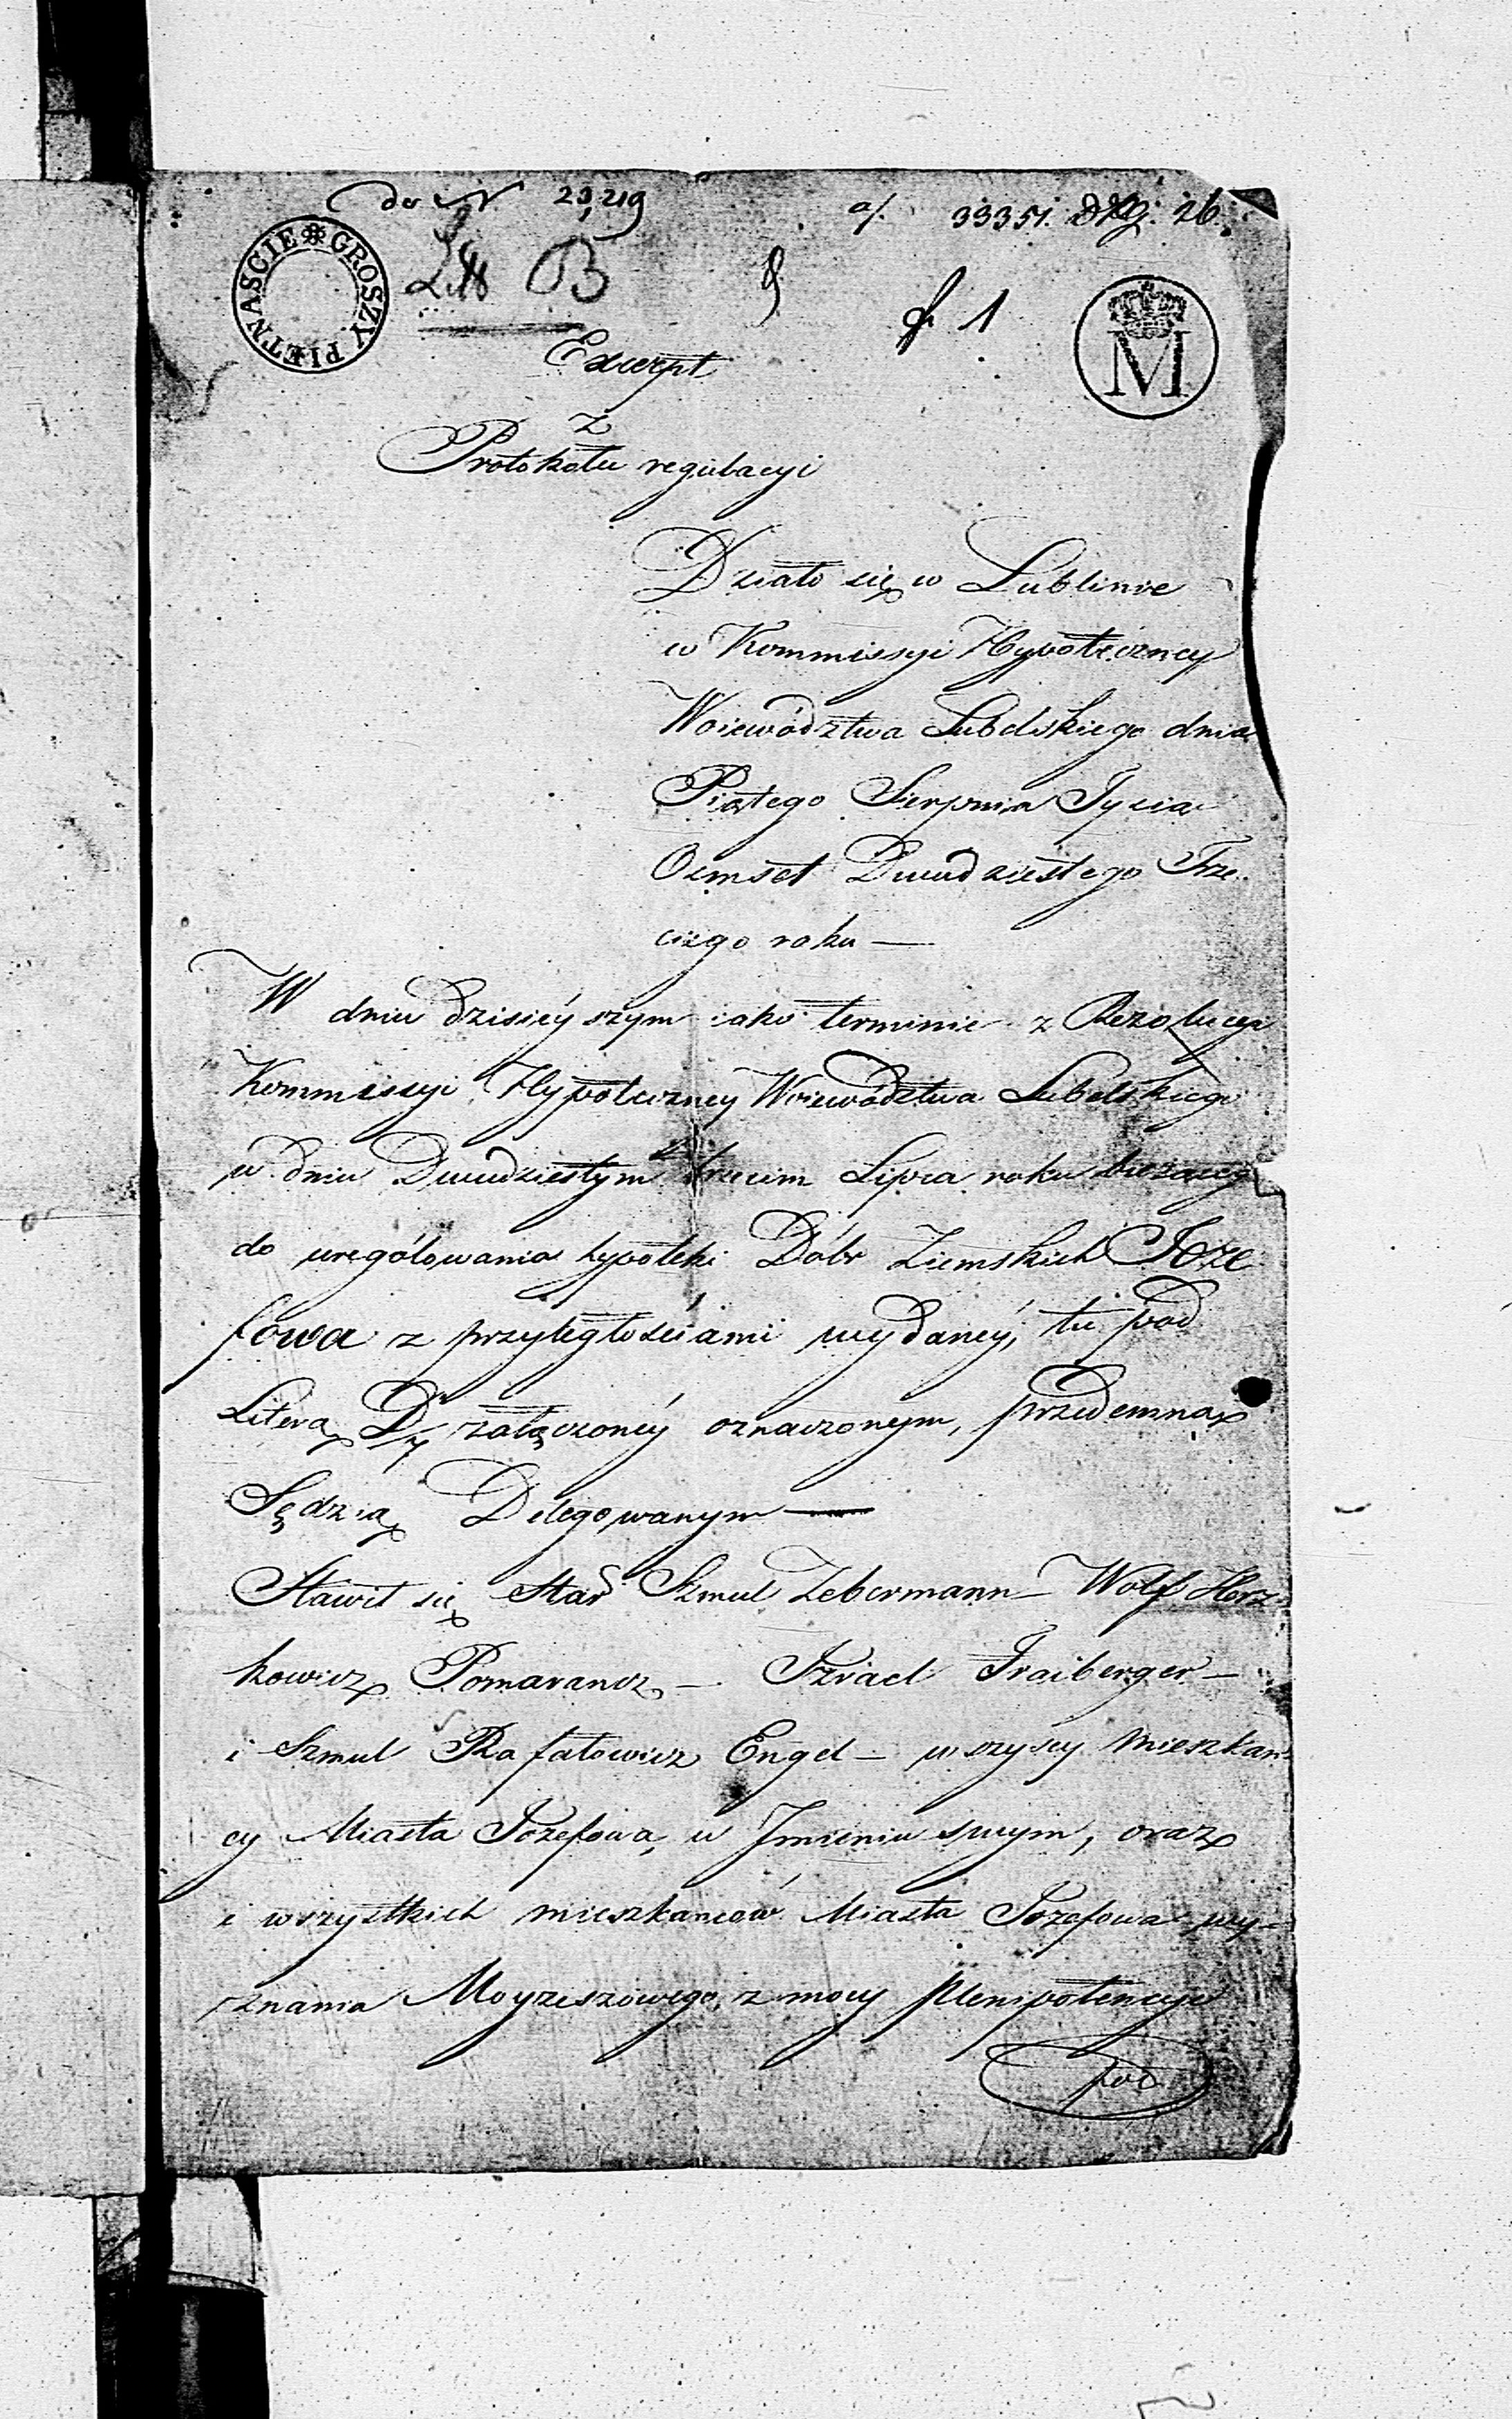 do N. 23,219 a/. 33351. 26.
GROSZY PIĘTNAŚCIE
Litt B f. 1
M
Excerpt
z
Protokołu regulacyi
Działo się w Lublinie
w Kommissyi Hypoteczney
Woiewództwa Lubelskiego dnia
Piątego Sierpnia Tysia
Ośmset Dwudziestego Trze
ciego roku —
W dniu dzisieyszym iako terminie z Rezolucyi
Kommissyi Hypoteczney Woiewództwa Lubelskiego
w dniu Dwudziestym trzecim Lipca roku bieżącego
do uregulowania hypoteki Dóbr Ziemskich Józe
fowa z przyległościami wydaney, tu pod
Literą D załączoney oznaczonym, przedemną
Sędzią Delegowanym —
Stawił się Star Szmul Zebermann — Wolf Herz
kowicz Pomarancz — Izrael Fraiberger —
i Szmul Rafałowicz Engel — wszyscy mieszkań
cy Miasta Józefowa, w Imieniu swym, oraz
i wszystkich mieszkańców Miasta Józefowa wy-
znania Moyżeszowego, z mocy plenipotencyi
pod